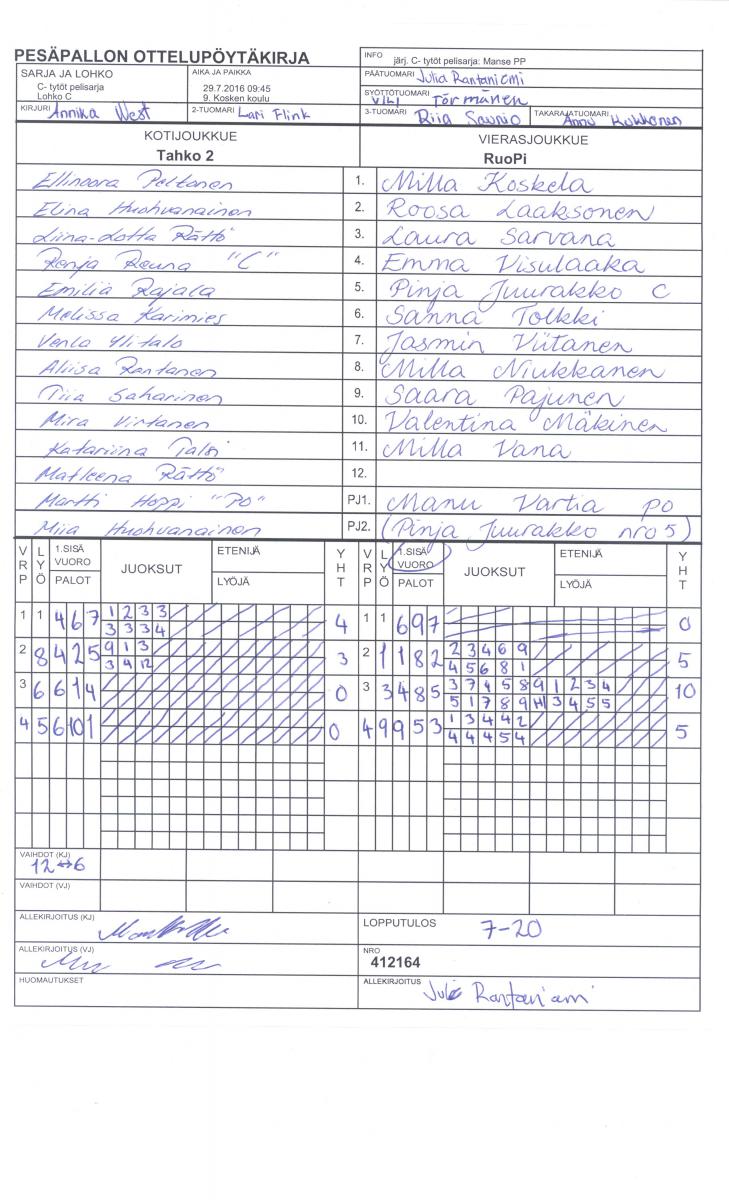 PESÄPALLON OTTELUPÖYTÄKIRJA
INFO järj. C- tytöt pelisarja: Manse PP
SARJA JA LOHKO
C- tytöt pelisarja
Lohko C
AIKA JA PAIKKA
29.7.2016 09:45
9. Kosken koulu
PÄÄTUOMARI Julia Rantaniemi
SYÖTTÖTUOMARI Vili Törmänen
KIRJURI Annika West
2-TUOMARI Lari Flink
3-TUOMARI Riia Saunio
TAKARAJATUOMARI Annu Kukkonen
KOTIJOUKKUE VIERASJOUKKUE
Tahko 2 RuoPi
Ellinoora Peltonen 1. Milla Koskela
Elina Huohvanainen 2. Roosa Laaksonen
Liina-Lotta Rättö 3. Laura Sarvana
Ronja Reuna "C" 4. Emma Visulaaka
Emilia Rajala 5. Pinja Juurakko C
Melissa Karimies 6. Sanna Tolkki
Venla Ylitalo 7. Jasmin Viitanen
Aliisa Rantanen 8. Milla Niukkanen
Tiia Saharinen 9. Saara Pajunen
Mira Virtanen 10. Valentina Mäkinen
Katariina Talsi 11. Milla Vana
Matleena Rättö 12.
Martti Hoppi "PO" PJ1. Manu Vartia PO
Miia Huohvanainen PJ2. (Pinja Juurakko nro 5)
VRP LYÖ 1.SISÄ VUORO PALOT JUOKSUT ETENIJÄ LYÖJÄ YHT VRP LYÖ 1.SISÄ VUORO PALOT JUOKSUT ETENIJÄ LYÖJÄ YHT
1 1 4 6 7 1 2 3 3 4 1 1 6 9 7 0
3 3 3 4
2 8 4 2 5 9 1 3 3 2 1 1 8 2 2 3 4 6 9 5
3 4 12 4 5 6 8 1
3 6 6 1 4 0 3 3 4 8 5 3 7 4 5 8 9 1 2 3 4 10
5 1 7 8 9 H 3 4 5 5
4 5 6 10 1 0 4 9 9 5 3 1 3 4 4 2 5
4 4 4 5 4
VAIHDOT (KJ)
12↔6
VAIHDOT (VJ)
ALLEKIRJOITUS (KJ)
LOPPUTULOS 7-20
ALLEKIRJOITUS (VJ)
NRO
412164
HUOMAUTUKSET
ALLEKIRJOITUS Julia Rantaniemi